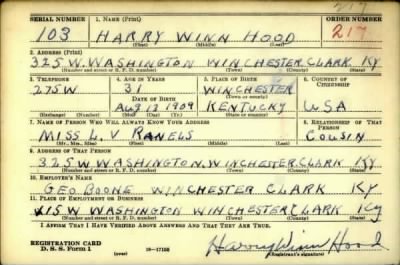 217
SERIAL NUMBER 1. NAME (Print) ORDER NUMBER
103 HARRY WINN HOOD 217
(First) (Middle) (Last)
2. ADDRESS (Print)
325 W. WASHINGTON WINCHESTER CLARK KY
(Number and street or R. F. D. number) (Town) (County) (State)
3. TELEPHONE 4. AGE IN YEARS 5. PLACE OF BIRTH 6. COUNTRY OF CITIZENSHIP
275W 31 WINCHESTER
DATE OF BIRTH (Town or county)
Aug 12 1909 KENTUCKY USA
(Exchange) (Number) (Mo.) (Day) (Yr.) (State or country)
7. NAME OF PERSON WHO WILL ALWAYS KNOW YOUR ADDRESS 8. RELATIONSHIP OF THAT PERSON
MISS L. V RANELS COUSIN
(Mr., Mrs., Miss) (First) (Middle) (Last)
9. ADDRESS OF THAT PERSON
325 W WASHINGTON, WINCHESTER CLARK KY
(Number and street or R. F. D. number) (Town) (County) (State)
10. EMPLOYER'S NAME
GEO BOONE WINCHESTER CLARK KY
11. PLACE OF EMPLOYMENT OR BUSINESS
W WASHINGTON WINCHESTER CLARK KY
(Number and street or R. F. D. number) (Town) (County) (State)
I AFFIRM THAT I HAVE VERIFIED ABOVE ANSWERS AND THAT THEY ARE TRUE.
REGISTRATION CARD
D. S. S. Form 1 (over) 16-17105 Harry Winn Hood
(Registrant's signature)